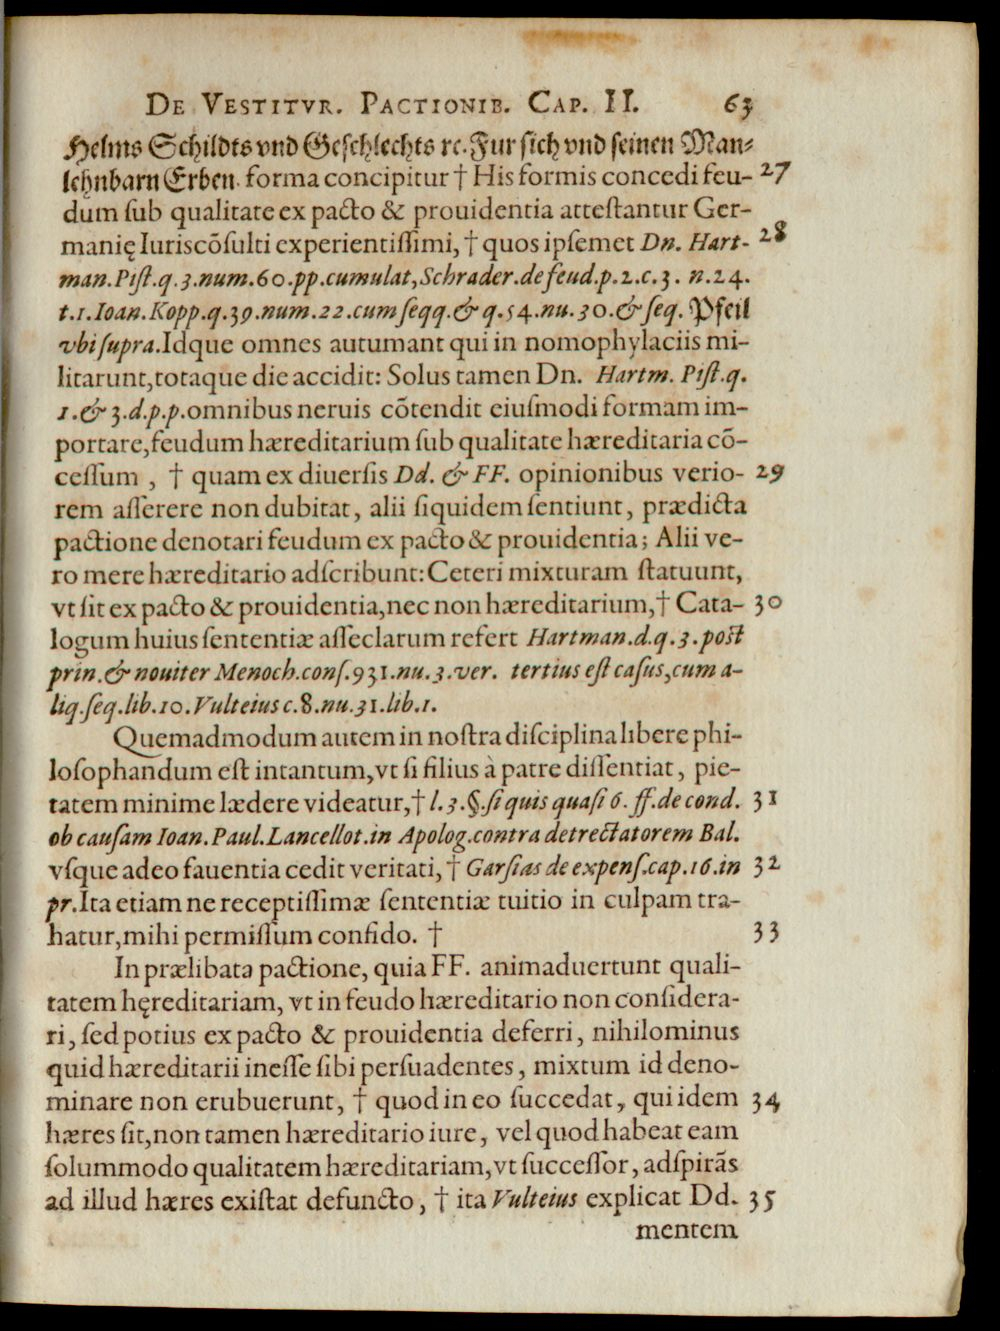 De Vestitvr. Pactionib. Cap. II. 63
Helms Schildts vnd Geschlechts ꝛc. Fur sich vnd seinen Man⸗
lehnbarn Erben. forma concipitur † His formis concedi feu- 27
dum ſub qualitate ex pacto & prouidentia atteſtantur Ger-
manię Iuriscõſulti experientiſſimi, † quos ipſemet Dn. Hart- 28
man. Piſt. q. 3. num. 60. pp. cumulat, Schrader. de feud. p. 2. c. 3. n. 24.
t. 1. Ioan. Kopp. q. 39. num. 22. cum ſeqq. & q. 54. nu. 30. & ſeq. Pfeil
vbi ſupra. Idque omnes autumant qui in nomophylaciis mi-
litarunt, totaque die accidit: Solus tamen Dn. Hartm. Piſt. q.
1. & 3. d. p. p. omnibus neruis cõtendit eiuſmodi formam im-
portare, feudum hæreditarium ſub qualitate hæreditaria cõ-
ceſſum , † quam ex diuerſis Dd. & FF. opinionibus verio- 29
rem aſſerere non dubitat, alii ſiquidem ſentiunt, prædicta
pactione denotari feudum ex pacto & prouidentia; Alii ve-
ro mere hæreditario adſcribunt: Ceteri mixturam ſtatuunt,
vt ſit ex pacto & prouidentia, nec non hæreditarium, † Cata- 30
logum huius ſententiæ aſſeclarum refert Hartman. d. q. 3. poſt
prin. & nouiter Menoch. conſ. 931. nu. 3. ver. tertius eſt caſus, cum a-
liq. ſeq. lib. 10. Vulteius c. 8. nu. 31. lib. 1.
Quemadmodum autem in noſtra diſciplina libere phi-
loſophandum eſt intantum, vt ſi filius à patre diſſentiat, pie-
tatem minime lædere videatur, † l. 3. §. ſi quis quaſi 6. ff. de cond. 31
ob cauſam Ioan. Paul. Lancellot. in Apolog. contra detrectatorem Bal.
vſque adeo fauentia cedit veritati, † Garſias de expenſ. cap. 16. in 32
pr. Ita etiam ne receptiſſimæ ſententiæ tuitio in culpam tra-
hatur, mihi permiſſum confido. † 33
In prælibata pactione, quia FF. animaduertunt quali-
tatem hęreditariam, vt in feudo hæreditario non conſidera-
ri, ſed potius ex pacto & prouidentia deferri, nihilominus
quid hæreditarii ineſſe ſibi perſuadentes, mixtum id deno-
minare non erubuerunt, † quod in eo ſuccedat, qui idem 34
hæres ſit, non tamen hæreditario iure, vel quod habeat eam
ſolummodo qualitatem hæreditariam, vt ſucceſſor, adſpirãs
ad illud hæres exiſtat defuncto, † ita Vulteius explicat Dd. 35
mentem